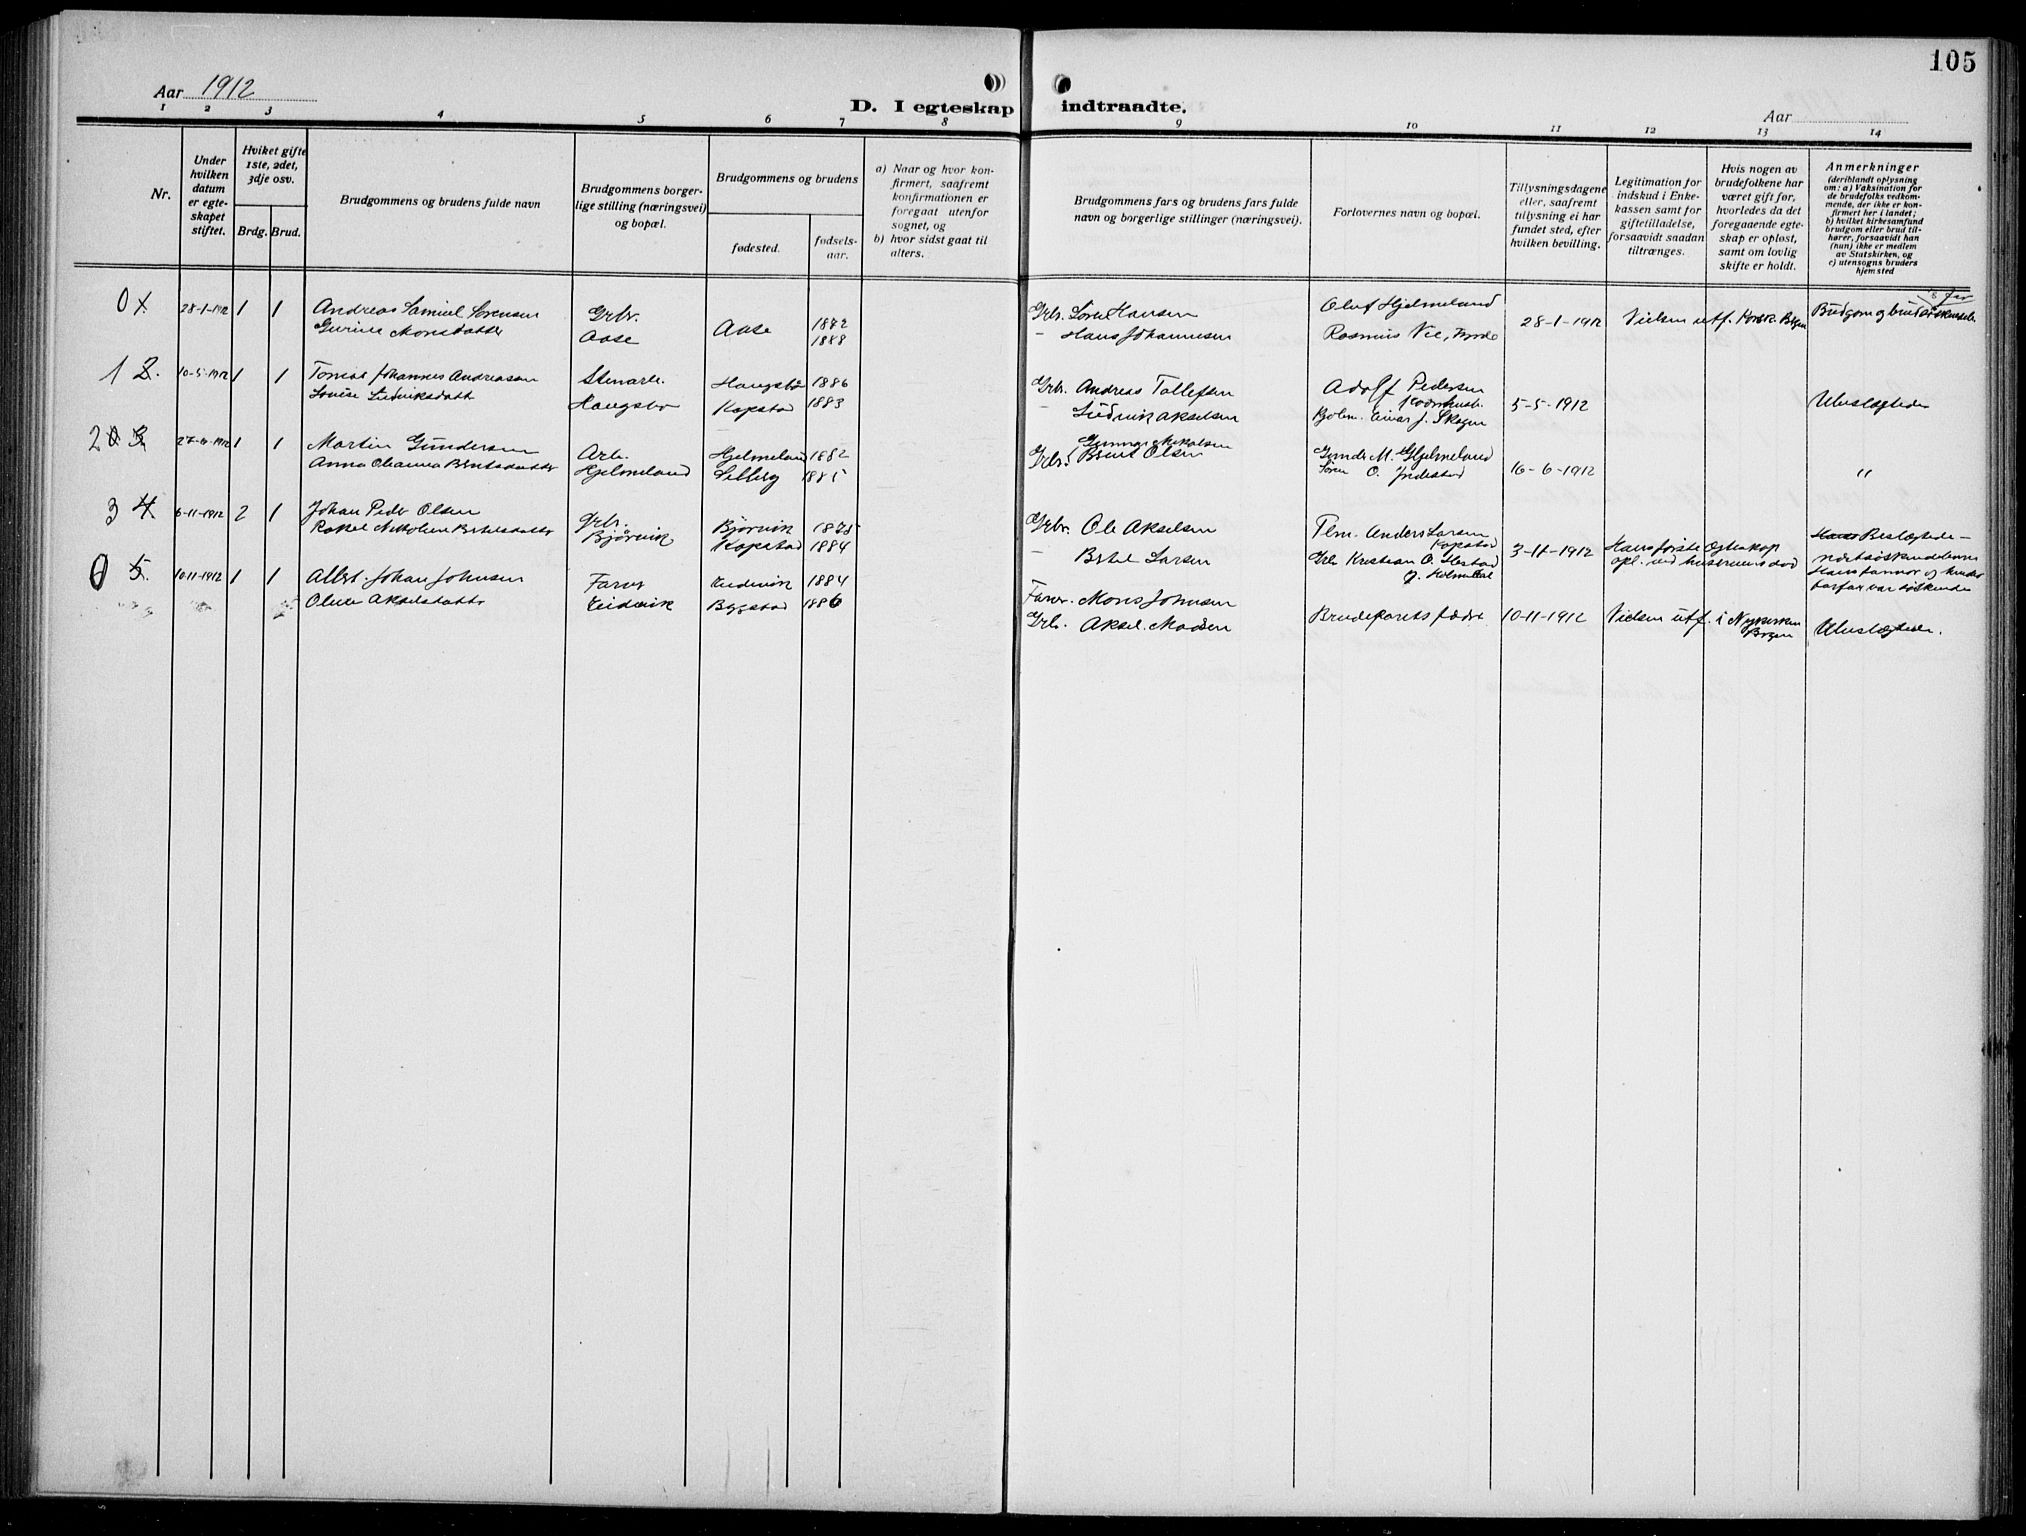 105
Aar 1912
D. I egteskap indtraadte.
Aar
1 2 3 4 5 6 7 8 9 10 11 12 13 14
Nr.
Under hvilken datum er egte-skapet stiftet.
Hviket gifte 1ste, 2det, 3dje osv.
Brdg. Brud.
Brudgommens og brudens fulde navn
Brudgommens borger-lige stilling (næringsvei) og bopæl.
Brudgommens og brudens
fødested.
fødsels-aar.
a) Naar og hvor kon-firmert, saafremt konfirmationen er foregaat utenfor sognet, og
b) hvor sidst gaat til alters.
Brudgommens fars og brudens fars fulde navn og borgerlige stillinger (næringsvei).
Forlovernes navn og bopæl.
Tillysningsdagene eller, saafremt tillysning ei har fundet sted, efter hvilken bevilling.
Legitimation for indskud i Enke-kassen samt for giftetilladelse, forsaavidt saadan tiltrænges.
Hvis nogen av brudefolkene har været gift før, hvorledes da det foregaaende egte-skap er opløst, samt om lovlig skifte er holdt.
Anmerkninger
(deriblandt oplysning om: a) Vaksination for de brudefolks vedkom-mende, der ikke er kon-firmert her i landet; b) hvilket kirkesamfund brudgom eller brud til-hører, forsaavidt han (hun) ikke er medlem av Statskirken, og c) utensogns bruders hjemsted
0 1 28-1-1912 1 1 Andreas Samuel Sørensen Grbr. Aase 1872 Grbr. Søren Hansen Oluf Hjelmeland 28-1-1912 Vielsen utf. Korsk. Bergen Brudgom og brudes far
Gurine Monsdatter Aase 1888 - Hans Johannesen Rasmus Vie, Førde
1 2. 10-5-1912 1 1 Tomas Johannes Andreasen Stenarb. Haugsbø 1886 Grbr. Andreas Tollefsen Adolf Pedersen 5-5-1912 Ubeslegtede
Lovise Ludviksdatt Haugsbø Kopstad 1883 - Ludvik Akselsen Bolm. Einar J. Skogen
2 3 27-6-1912 1 1 Martin Gundersen Arb. Hjelmeland 1882 Grbr. Gunnar Mikalsen Gunder M. Hjelmeland 16-6-1912 "
Anna Olianna Berntsdatter Hjelmeland Selberg 1885 Bernt Olsen Søren O. Indrestad
3 4 6-11-1912 2 1 Johan Peder Olsen Grbr. Bjørvik 1875 Grbr. Ole Akselsen Tlm. Anders Larsen Kopstad 3-11-1912 Hans første egteskap Beslegtede -
Rakel Nikoline Bertelsdatter Bjørvik Kopstad 1884 - Bertel Larsen Grb Kristian O. opl. ved hustruens død næstsøskendebarn
Hans farmor og hendes farfar var søskende
0 5. 10-11-1912 1 1 Albert Johan Johnsen Farver Eidevik 1884 Farver. Mons Johnsen Brudeparets fædre 10-11-1912 Vielsen utf. i Nykirken Bergen Ubeslegtede.
Oline Akselsdatter Eidevik Bygstad 1886 Grb. Aksel Madsen